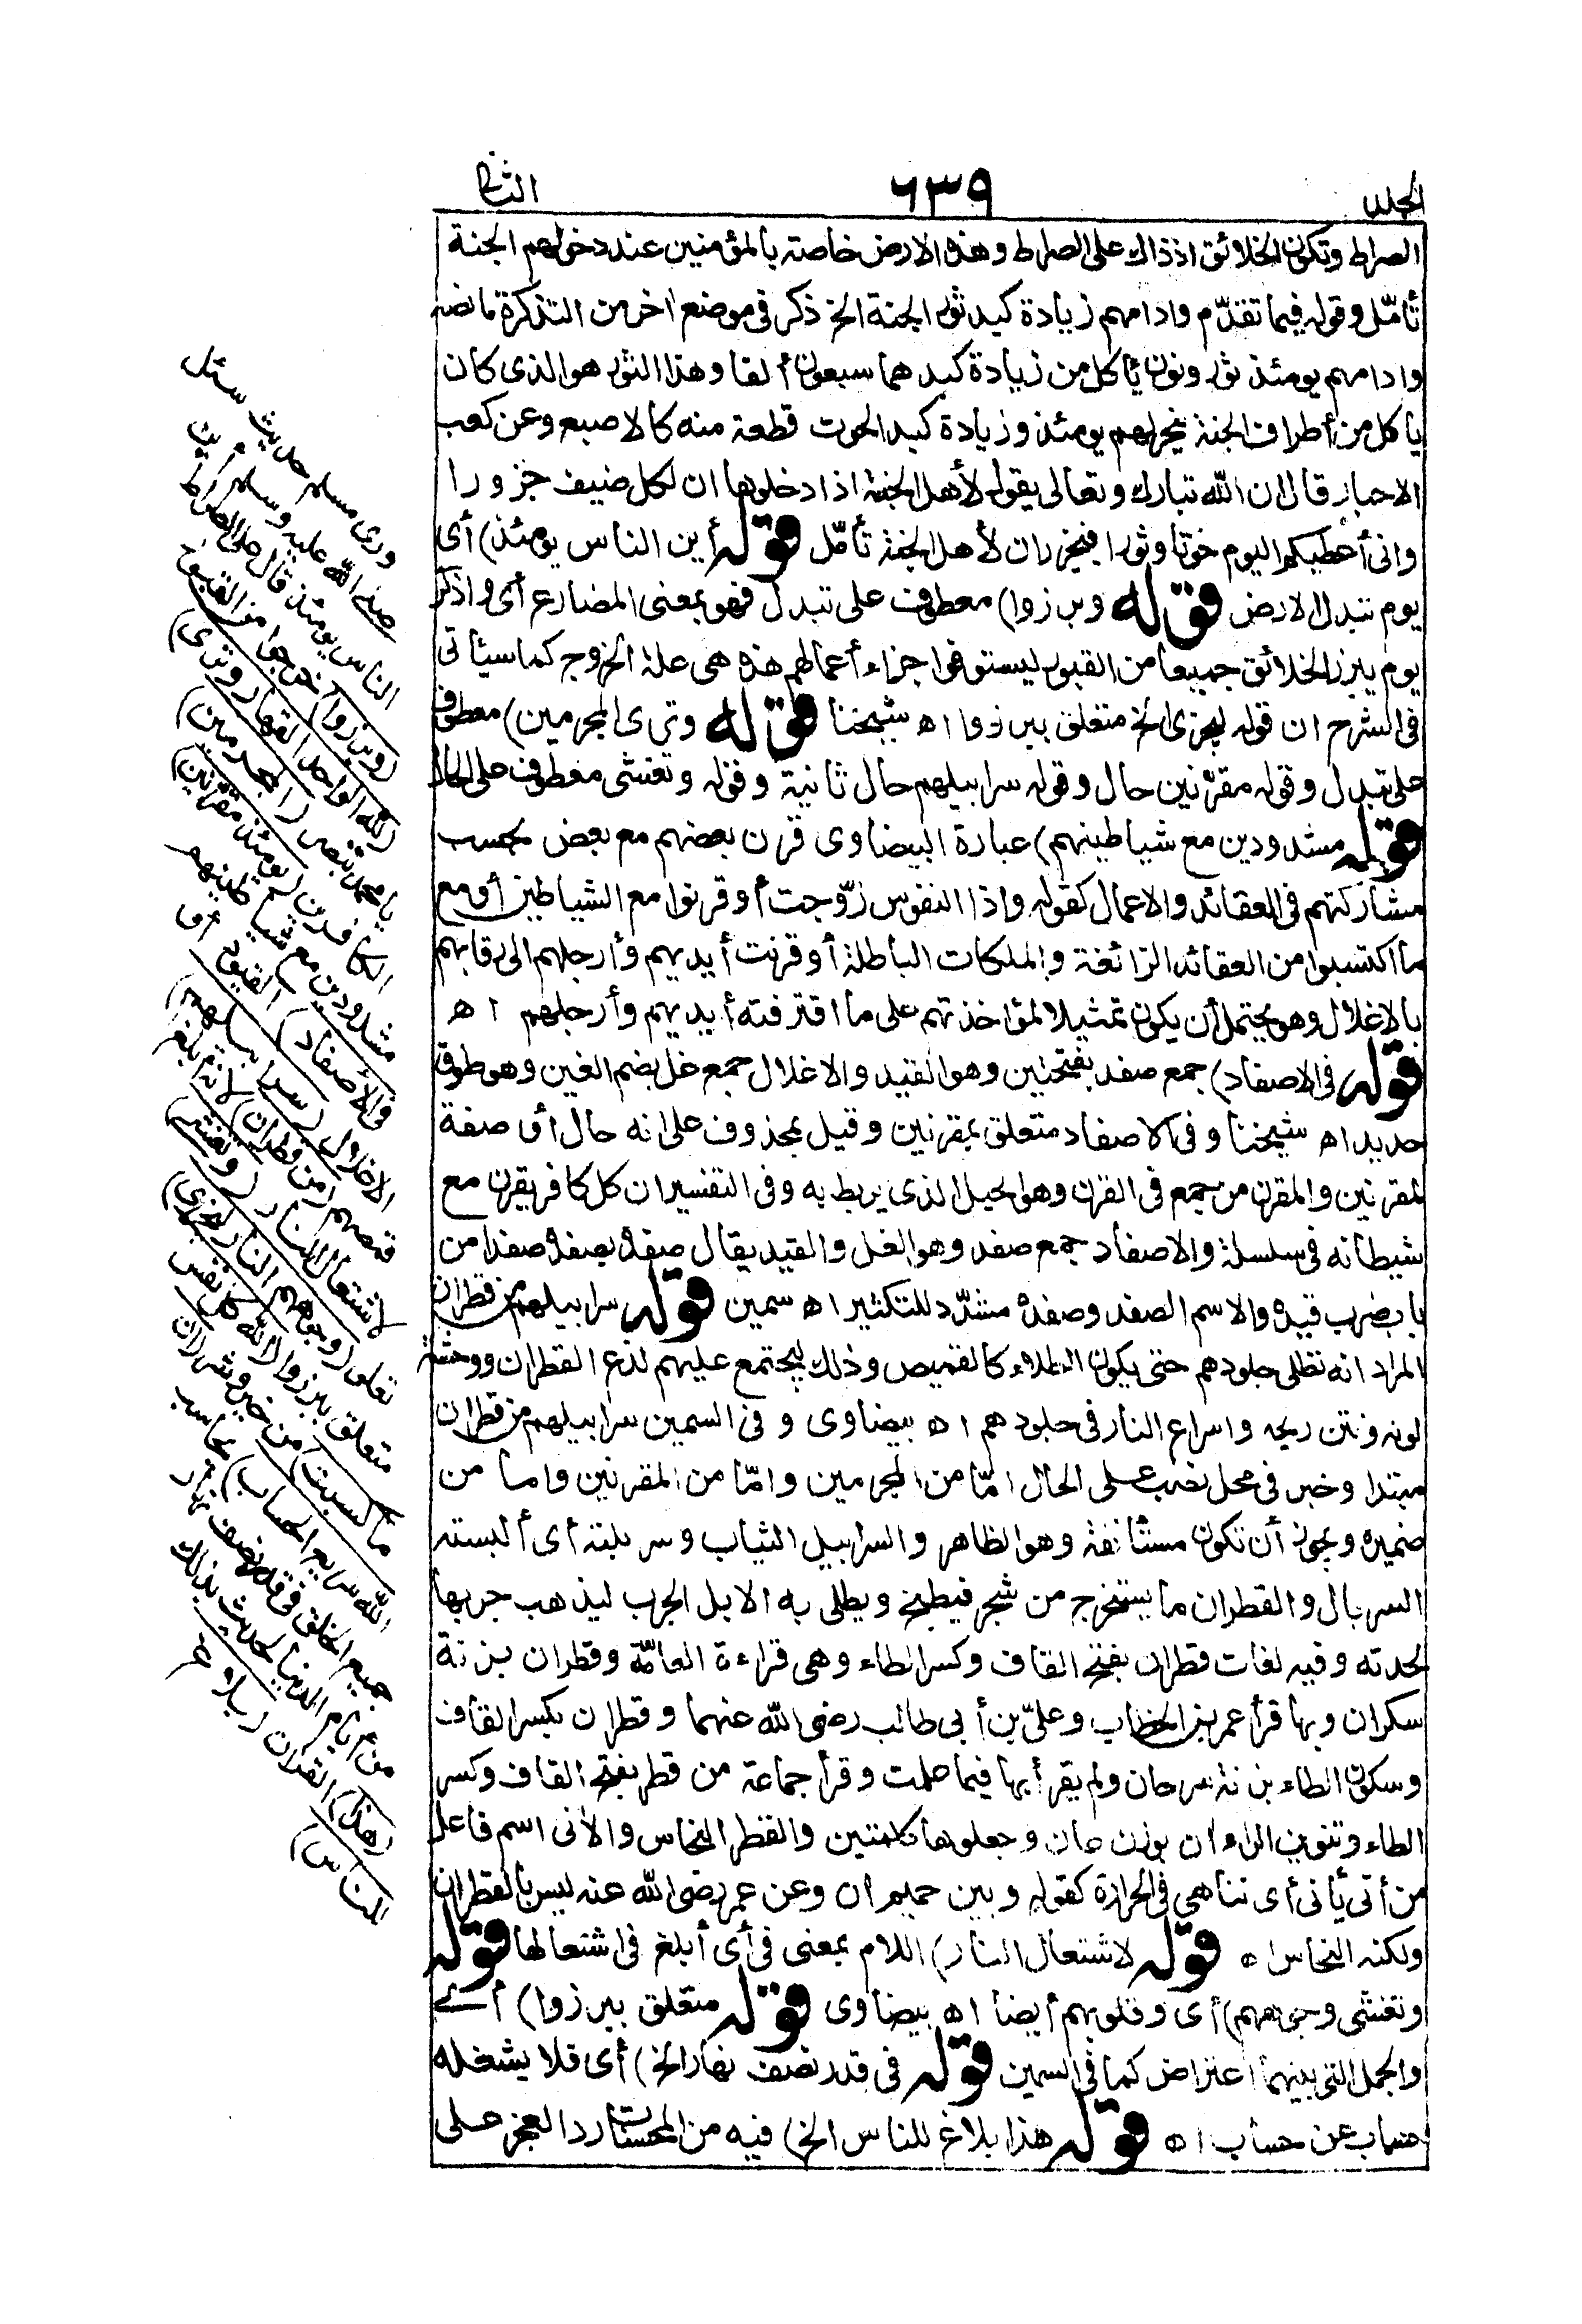 الجلد ٦٣٩ الثانى
الصراط وتكون الخلائق اذ ذاك على الصراط وهذه الارض خاصة بالمؤمنين عند دخولهم الجنة
تأمّل وقوله فيما تقدّم وادامهم زيادة كبد ثور الجنة الخ ذكر فى موضع اخر من التذكرة ما نصه
وادامهم يومئذ ثور ونون يأكل من زيادة كبدهما سبعون ألفا وهذا الثور هو الذى كان
يأكل من أطراف الجنة ينحر لهم يومئذ وزيادة كبد الحوت قطعة منه كالاصبع وعن كعب
الاحبار قال ان الله تبارك وتعالى يقول لأهل الجنة اذا دخلوها ان لكل ضيف جزورا
وانى أعطيكم اليوم حوتا وثورا فيجزران لأهل الجنة تأمّل قوله أين الناس يومئذ) أى
يوم تبدل الارض قوله وبرزوا) معطوف على تبدل فهو بمعنى المضارع أى واذكر
يوم يبرز الخلائق جميعا من القبور ليستوفوا جزاء أعمالهم هذه هى علة الخروج كما سيأتى
فى الشرح ان قوله ليجزى الخ متعلق ببرزوا اه شيخنا قوله وترى المجرمين) معطوف
على تبدل وقوله مقرّنين حال وقوله سرابيلهم حال ثانية وقوله وتغشى معطوف على الحال
قوله مشدودين مع شياطينهم) عبارة البيضاوى قرن بعضهم مع بعض بحسب
مشاركتهم فى العقائد والاعمال كقوله واذا النفوس زوّجت أو قرنوا مع الشياطين أو مع
ما اكتسبوا من العقائد الزائغة والملكات الباطلة أو قرنت أيديهم وأرجلهم الى رقابهم
بالاغلال وهو يحتمل أن يكون تمثيلا لمؤاخذتهم على ما اقترفته أيديهم وأرجلهم اه
قوله فى الاصفاد) جمع صفد بفتحتين وهو القيد والاغلال جمع غل بضم الغين وهو طوق
حديد اه شيخنا وفى الاصفاد متعلق بمقرنين وقيل بمحذوف على انه حال أو صفة
لمقرنين والمقرن من جمع فى القرن وهو الحبل الذى يربط به وفى التفسير ان كل كافر يقرن مع
شيطانه فى سلسلة والاصفاد جمع صفد وهو الغل والقيد يقال صفده يصفده صفدا من
باب ضرب قيده والاسم الصفد وصفده مشدّد للتكثير اه سمين قوله سرابيلهم من قطران
المراد انه تطلى جلودهم حتى يكون الطلاء كالقميص وذلك ليجتمع عليهم لذع القطران ووحشة
لونه ونتن ريحه واسراع النار فى جلودهم اه بيضاوى وفى السمين سرابيلهم من قطران
مبتدا وخبر فى محل نصب على الحال امّا من المجرمين وامّا من المقرنين واما من
ضميره ويجوز أن تكون مستأنفة وهو الظاهر والسرابيل الثياب وسربلته أى ألبسته
السربال والقطران ما يستخرج من شجر فيطبخ ويطلى به الابل الجرب ليذهب جربها
لحدته وفيه لغات قطران بفتح القاف وكسر الطاء وهى قراءة العامّة وقطران بزنة
سكران وبها قرأ عمر بن الخطاب وعلىّ بن أبى طالب رضى الله عنهما وقطران بكسر القاف
وسكون الطاء بزنة سرحان ولم يقرأ بها فيما علمت وقرأ جماعة من قطر بفتح القاف وكسر
الطاء وتنوين الراء ان بوزن عان وجعلوها كلمتين والقطر النحاس والآنى اسم فاعل
من أنى يأنى أى تناهى فى الحرارة كقوله وبين حميم ان وعن عمر رضى الله عنه ليس بالقطران
ولكنه النحاس اه قوله لاشتعال النار) اللام بمعنى فى أى أبلغ فى اشتعالها قوله
وتغشى وجوههم) أى وقلوبهم أيضا اه بيضاوى قوله متعلق ببرزوا) أى
والجمل التى بينهما اعتراض كما فى السمين قوله فى قدر نصف نهار الخ) أى فلا يشغله
حساب عن حساب اه قوله هذا بلاغ للناس الخ) فيه من المحسنات رد العجز على
وروى مسلم حديث سئل
صلى الله عليه وسلم أين
الناس يومئذ قال على الصراط
(وبرزوا) خرجوا من القبور
(لله الواحد القهار وترى)
يا محمد تبصر (المجرمين)
الكافرين (يومئذ مقرّنين)
مشدودين مع شياطينهم
(فى الأصفاد) القيود أو
الاغلال (سرابيلهم)
قمصهم (من قطران) لانه أبلغ
لاشتعال النار (وتغشى)
تعلو (وجوههم النار ليجزى)
متعلق ببرزوا (الله كل نفس
ما كسبت) من خير وشر (ان
الله سريع الحساب) يحاسب
جميع الخلق فى قدر نصف نهار
من أيام الدنيا لحديث بذلك
(هذا) القران (بلاغ
للناس)